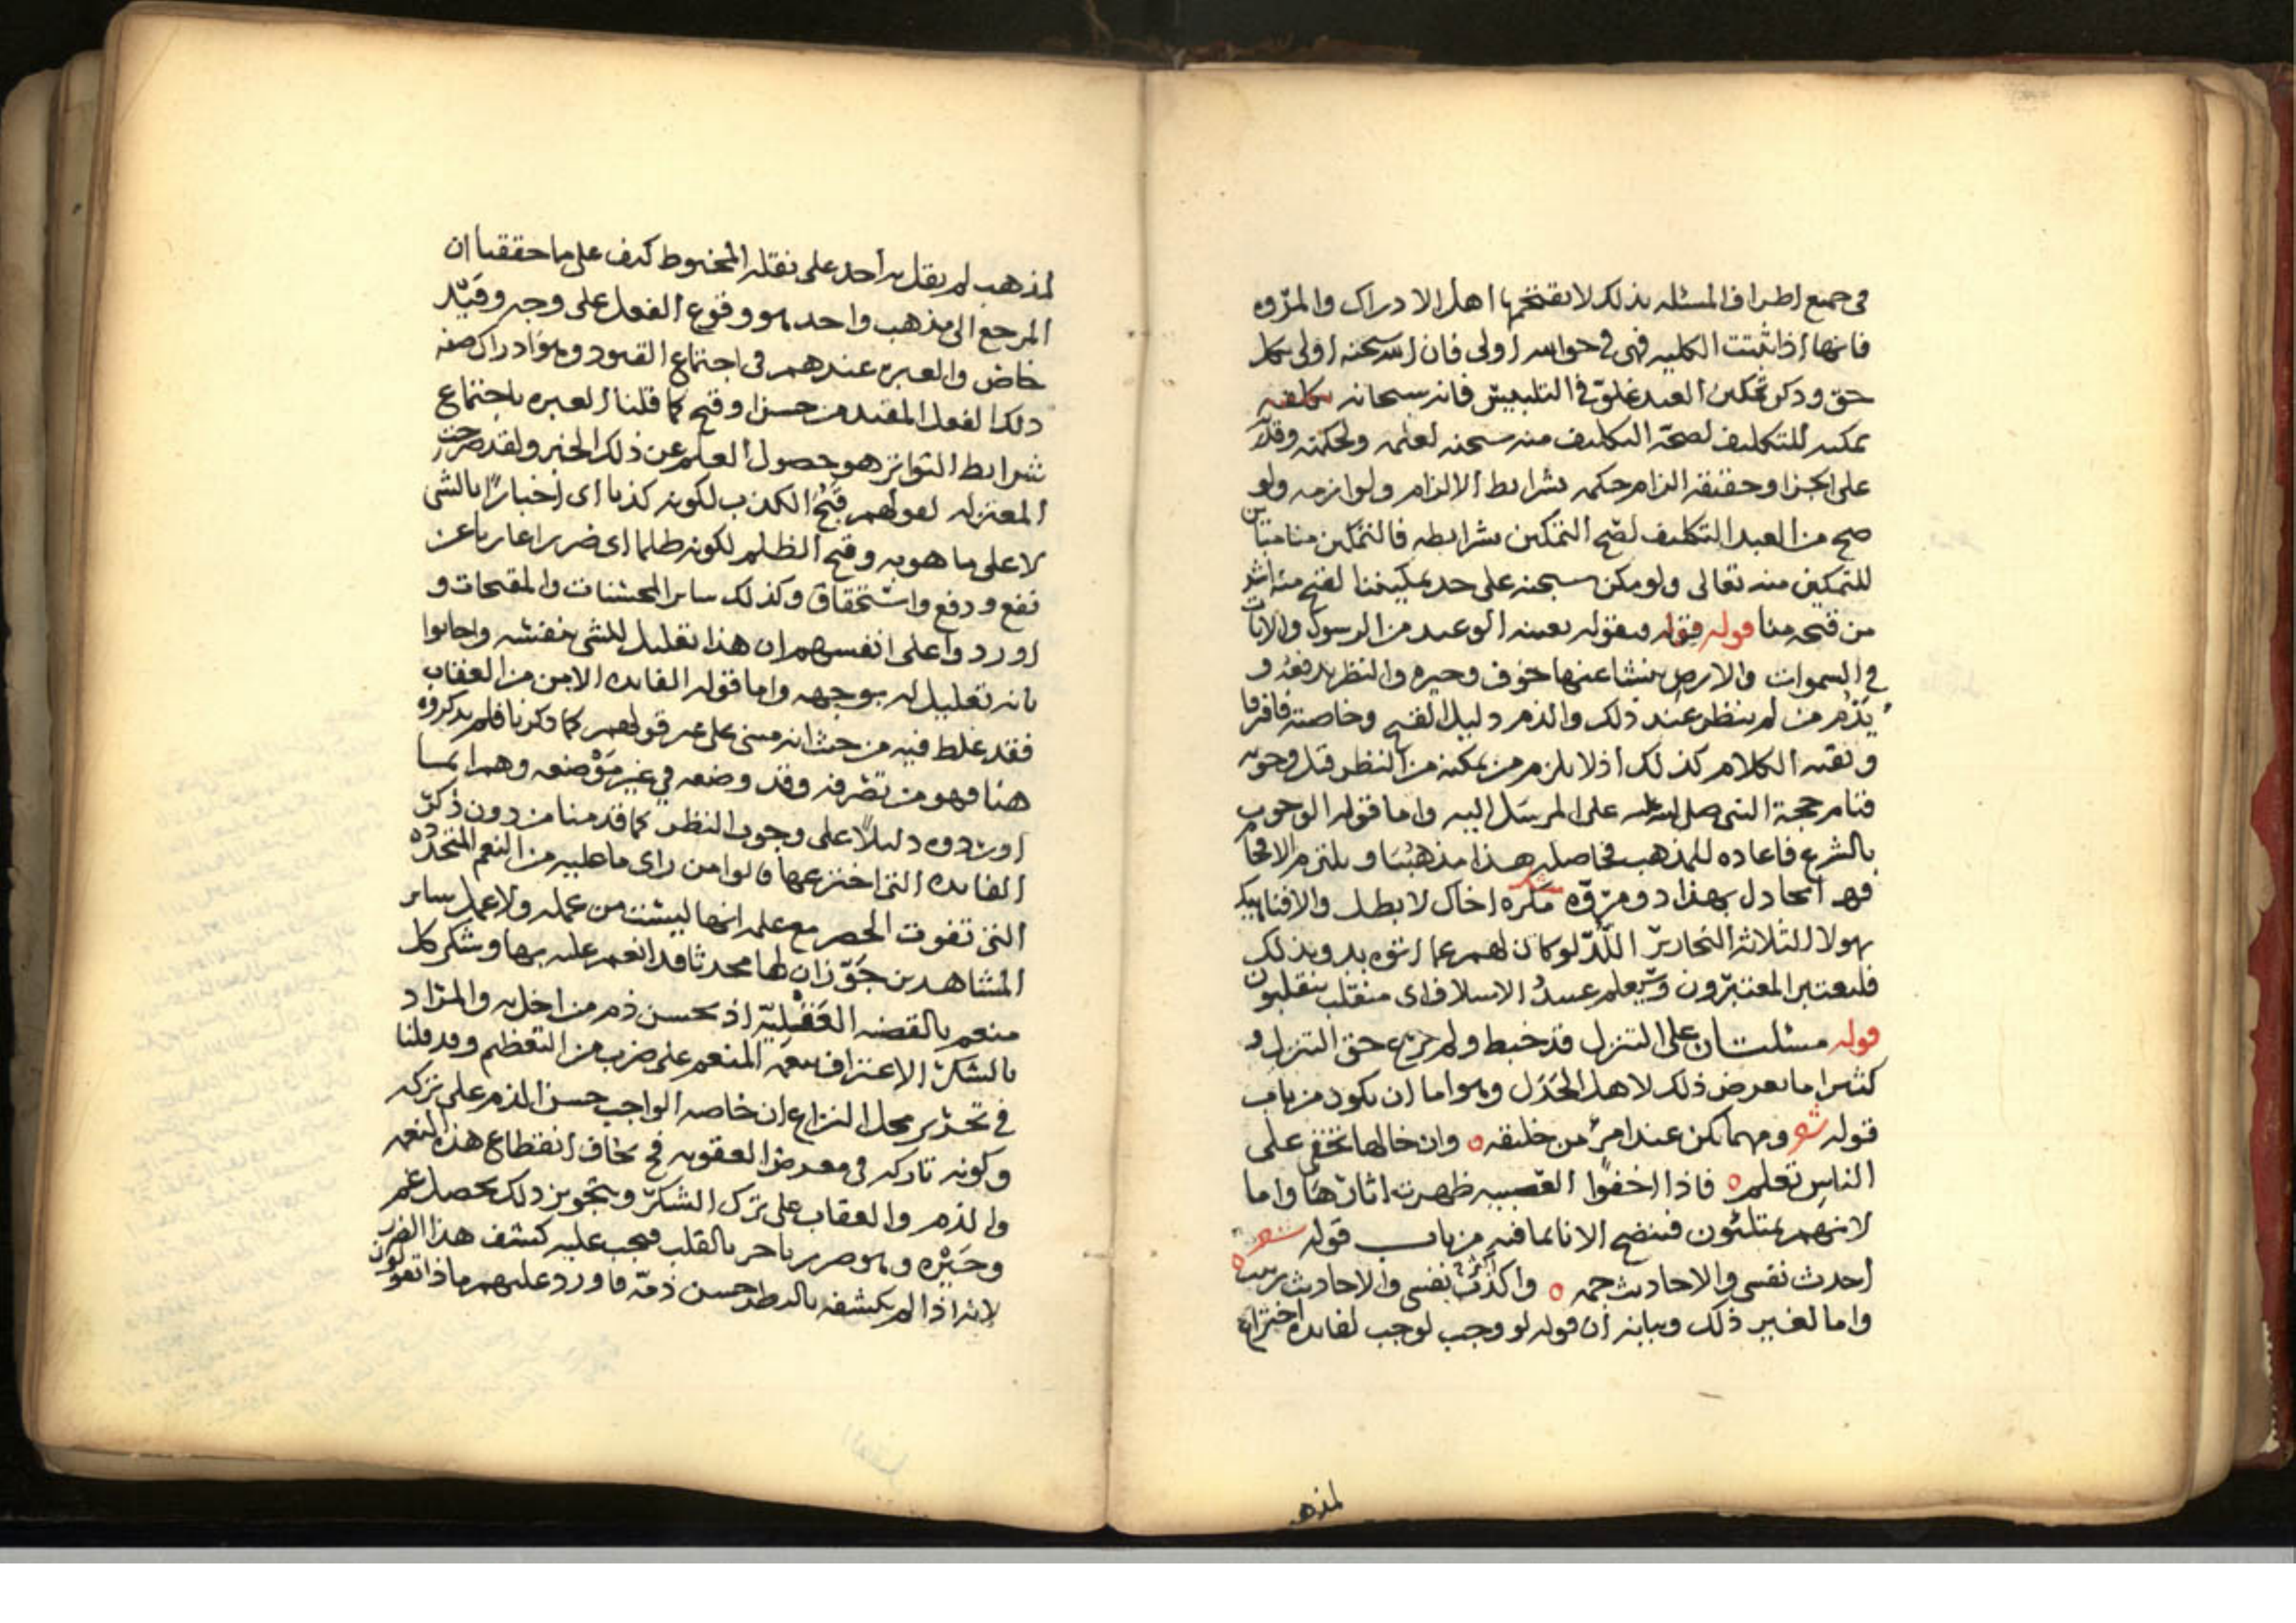 في جميع اطراف المسئله بذلك لا يقتحمها اهل الادراك والمروه
فانها اذا ثبتت الكليه فهي في حواسه اولى فان سبحنه اولى بكل
حق وذكر تمكين العبد غلو في التلبيس فانه سبحانه
تمكينه للتكليف لصحة التكليف منه سبحنه لعلمه وحكمته وقدر
على الجزا وحقيقته الزام حكمه بشرايط الالزام ولوازمه ولو
صح من العبد التكليف لصح التمكين بشرايطه فالتمكين منا مباين
للتمكين منه تعالى ولو مكن سبحنه على حد تمكيننا لقبح منه اشد
من قبحه منا قوله قوله فبقوله بعينه الوعيد من الرسول والايات
في السموات والارض ينشا عنها خوف وحيره والنظر يدفعه و
يذم من لم ينظر عند ذلك والذم دليل القبح وخاصته فافرقا
وبقية الكلام كذلك اذ لا يلزم من تمكنه من النظر قبل وجوبه
قيام حجة النبي صلى الله عليه على المرسل اليه واما قوله الوجوب
بالشرع فاعاده للمذهب فحاصله هذا مذهبنا ويلتزم الافحام
فهل يجادل بهذا ذو مروه مكره اخاك لا بطل والاقناعيكم
بهولا الثلاثه النحارير اللد لو كان لهم عما اتوه بد وبذلك
فليعتبر المعتبرون وسيعلم عبيد الاسلاف اي منقلب ينقلبون
قوله مسئلتان على التنزل قد خبط ولم يرع حق التنزل و
كثيرا ما يعرض ذلك لاهل الجدل وهو اما ان يكون من باب
قوله شعر ومهما تكن عند امرئ من خليقه ه وان خالها تخفى على
الناس تعلم ه فاذا اخفوا العصبيه ظهرت اثارها واما
لانهم ممتلئون فينضح الانا بما فيه من باب قوله شعر
احدث نفسي والاحاديث جمه ه واكذب نفسي والاحاديث
واما لغير ذلك وبيانه ان قوله لو وجب لوجب لفايده اختراع
لمذهـ
لمذهب لم يقل به احد على نقله المخبوط كيف على ما حققنا ان
المرجع الى مذهب واحد هو وقوع الفعل على وجه وقيد
خاص والعبره عندهم في اجتماع القيود وهو ادراك صفه
ذلك الفعل المقيد من حسن او قبح كما قلنا العبره باجتماع
شرايط التواتر هو حصول العلم عن ذلك الخبر ولقد صرحت
المعتزله لقولهم قبح الكذب لكونه كذبا اي اخبارا بالشي
لا على ما هو به وقبح الظلم لكونه ظلما اي ضررا عاريا عن
نفع ودفع واستحقاق وكذلك ساير المحسنات والمقبحات و
اوردوا على انفسهم ان هذا تعليل للشي بنفسه واجابوا
بانه تعليل له بوجهه واما قوله الفايده الامن من العقاب
فقد غلط فيه من حيث انه مبني على غير قولهم كما ذكرنا فلم يذكروه
هنا فهو من تصرفه وقد وضعه في غير موضعه وهم انما
اوردوه دليلا على وجوب النظر كما قدمنا من دون ذكر
الفايده التي اخترعها قالوا من راى ما عليه من النعم المتجدده
التي تفوت الحصر مع علمه انها ليست من عمله ولا عمل ساير
المشاهدين جوز ان لها محدثا قد انعم عليه بها وشكر كل
منعم بالقضيه العقليه اذ يحسن ذم من اخل به والمراد
بالشكر الاعتراف بنعمه المنعم على ضرب من التعظيم وقد قلنا
في تحرير محل النزاع ان خاصه الواجب حسن الذم على تركه
وكونه تاركه في معرض العقوبه فح يخاف انقطاع هذه النعمه
والذم والعقاب على ترك الشكر وبتجويز ذلك يحصل غم
وحيره وهو ضرر ناجز بالقلب فيجب عليه كشف هذا الضرر
لانه اذا لم يكشفه بالنظر حسن ذمه فاورد عليهم ماذا تقولون